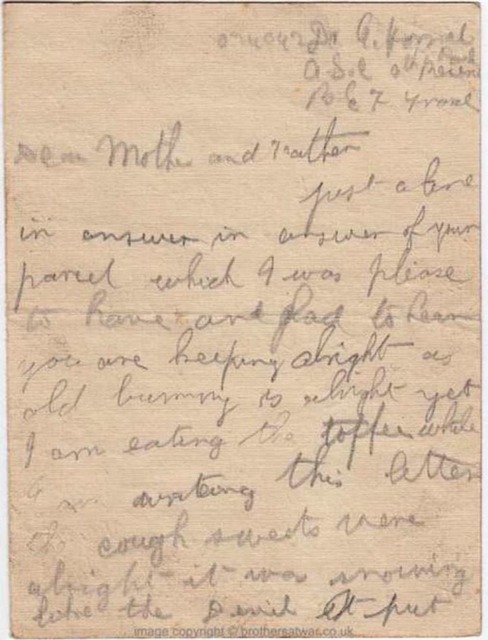 Dr A.
A.S.C at Present
B E F France
Dear Mother and Father
just a line
in answer in answer of your
parcel which I was please
to have and glad to hear
you are keeping alright as
old bunny is alright yet
I am eating the toffee while
I am writing this letter
the cough sweets were
alright it was snowing
like the Devil at put
image copyright © brothersatwar.co.uk